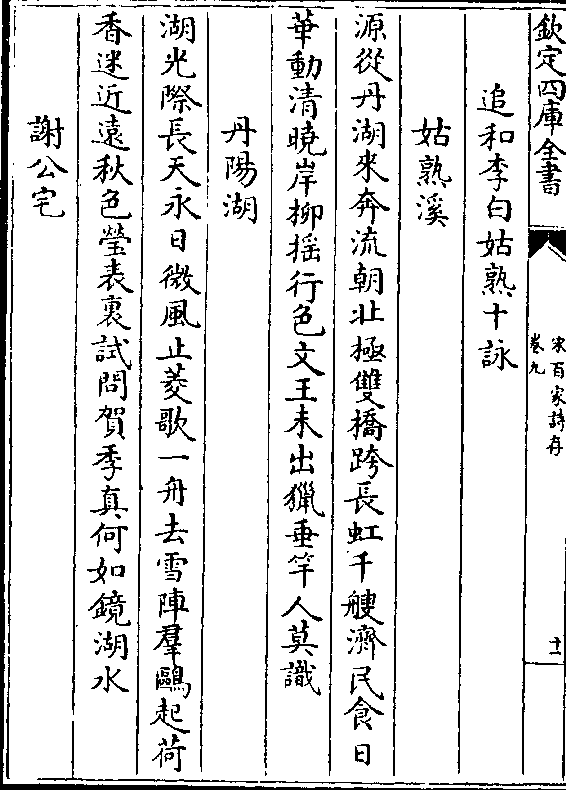 欽定四庫全書
宋百家詩存
卷九
十一
追和李白姑熟十詠
姑熟溪
源從丹湖來奔流朝北極雙橋跨長虹千艘濟民食日
華動清曉岸柳揺行色文王未出獵垂竿人莫識
丹陽湖
湖光際長天永日微風止菱歌一舟去雪陣羣鷗起荷
香迷近遠秋色瑩表裏試問賀季真何如鏡湖水
謝公宅